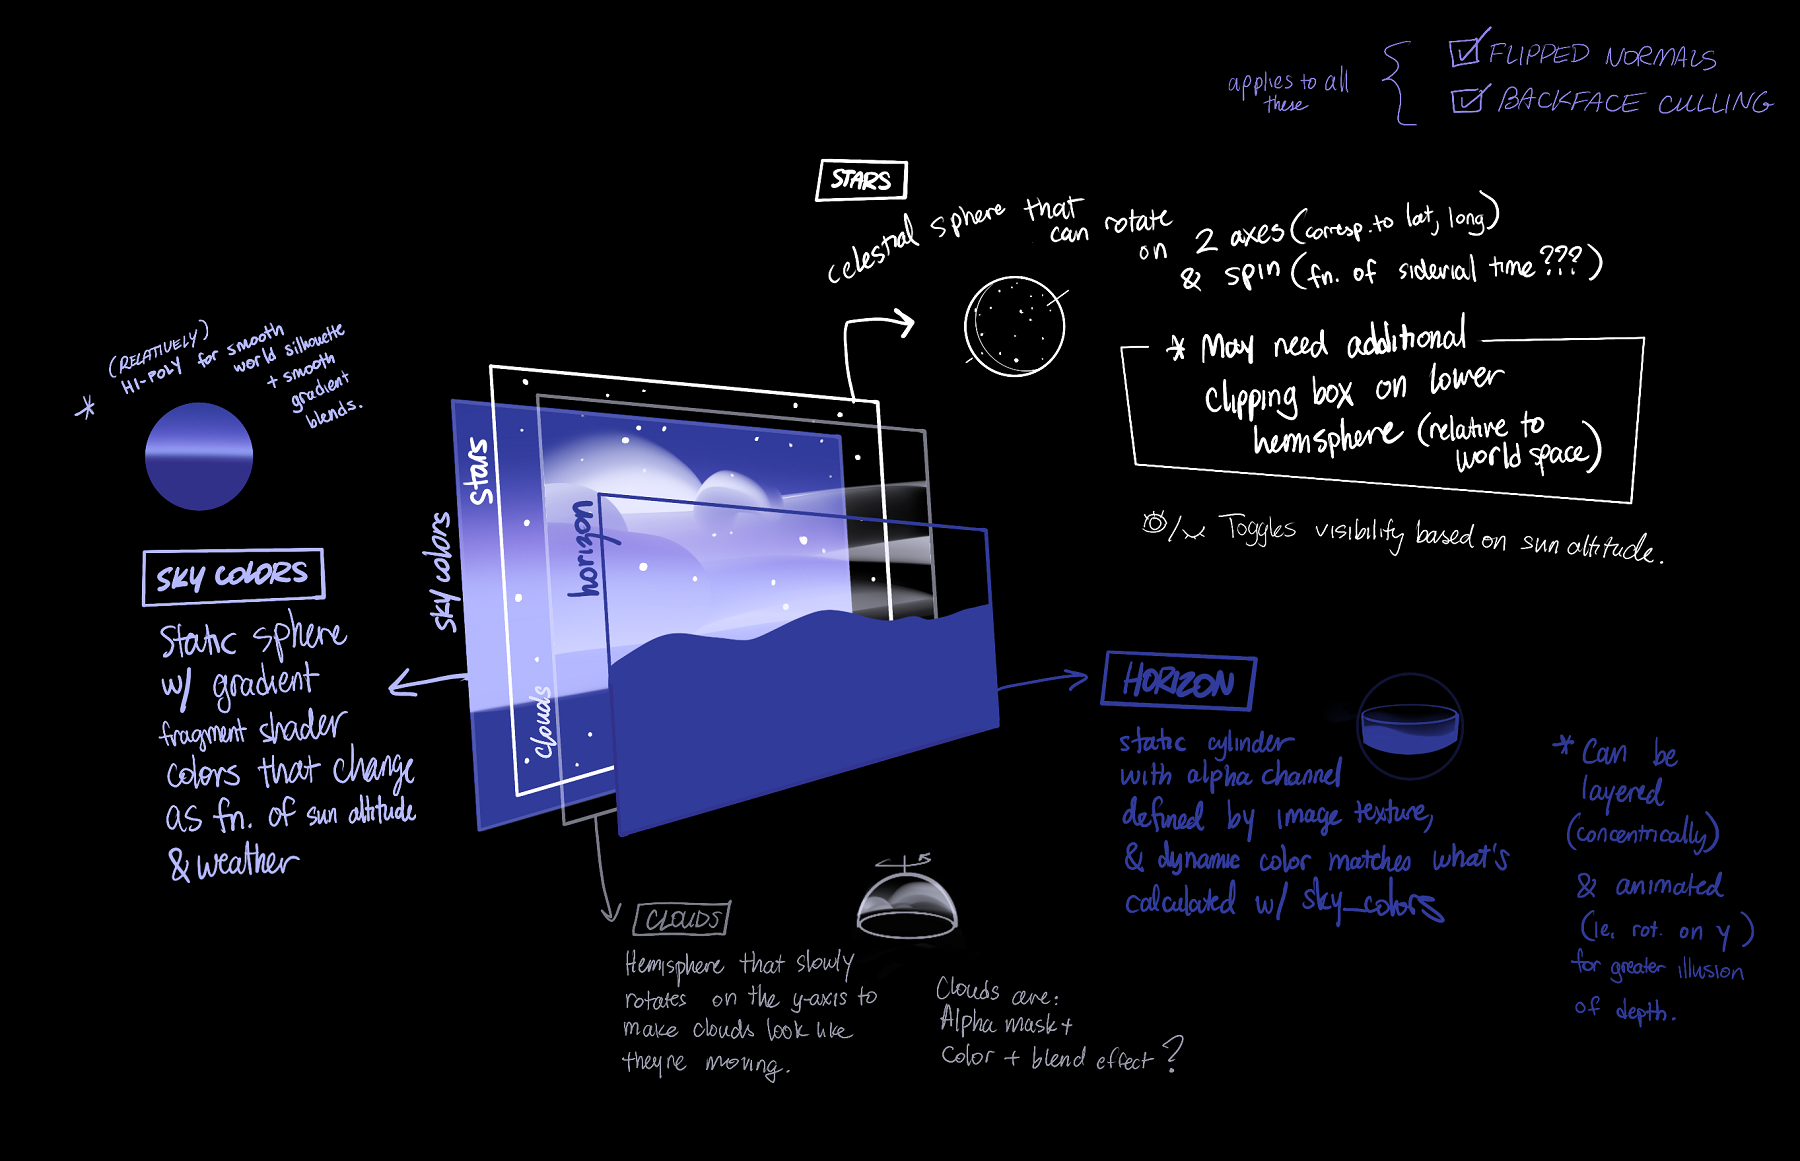 applies to all
these
FLIPPED NORMALS
BACKFACE CULLING
STARS
celestial sphere that
can rotate
on 2 axes (corresp. to lat, long)
& spin (fn. of siderial time ???)
* May need additional
clipping box on lower
hemisphere (relative to
world space)
/ Toggles visibility based on sun altitude.
(RELATIVELY)
* HI-POLY for smooth
world silhouette
+ smooth
gradient
blends.
SKY COLORS
Static sphere
w/ gradient
fragment shader
colors that change
as fn. of sun altitude
& weather
sky colors
stars
clouds
horizon
HORIZON
static cylinder
with alpha channel
defined by image texture,
& dynamic color matches what's
calculated w/ sky_colors
* Can be
layered
(concentrically)
& animated
(ie. rot. on y)
for greater illusion
of depth.
CLOUDS
Hemisphere that slowly
rotates on the y-axis to
make clouds look like
they're moving.
Clouds are:
Alpha mask +
Color + blend effect ?